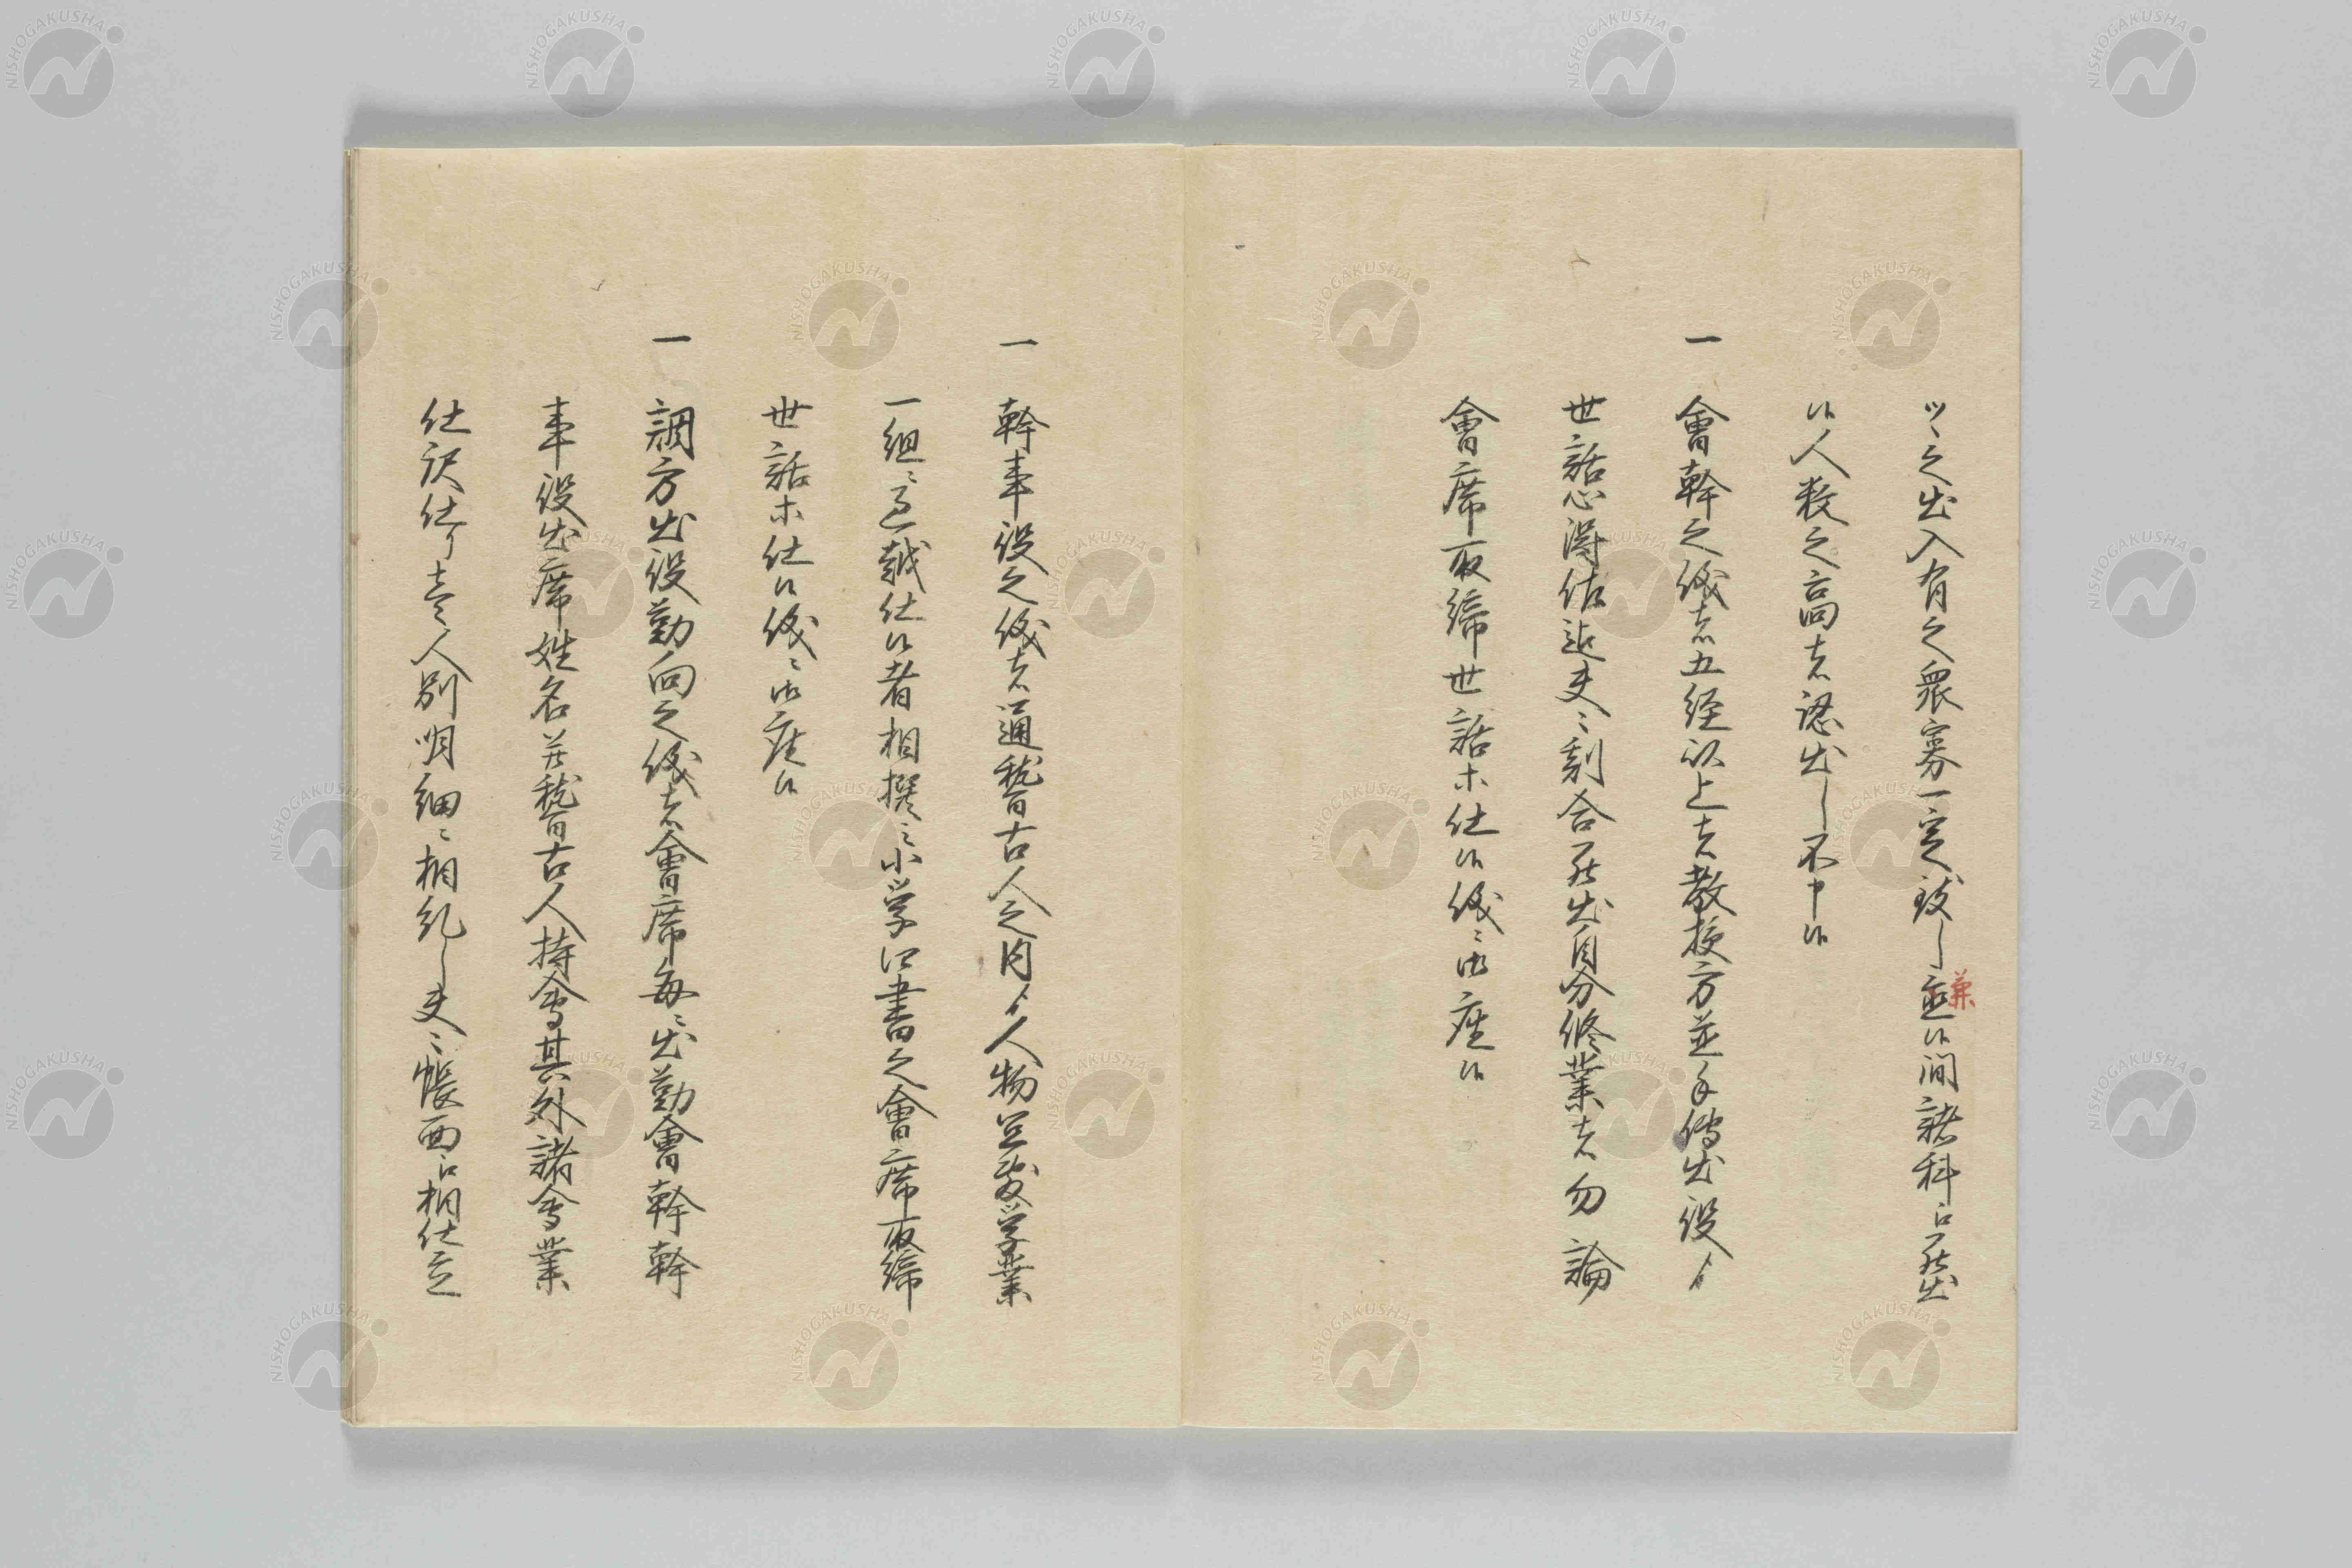 ツヽ之出入有之衆寡一定致し兼候間諸科江罷出
兼
候人数之高者認出し不申候
一 會幹之儀者五経以上者教授方並手伝出役ゟ
世話心得佐迄夫々割合罷出自分修業者勿論
會席取締世話等仕候儀ニ御座候
一 幹事役之儀者通稽古人之内ゟ人物并学業
一組ニ越仕候者相撰ミ小学四書之會席取締
世話等仕候儀ニ御座候
一 調方出役勤向之儀者會席毎ニ出勤會幹幹
事役出席姓名并稽古人持會其外諸會業
仕訳仕人別明細ニ相糺し夫々帳面江相仕立
NISHOGAKUSHA